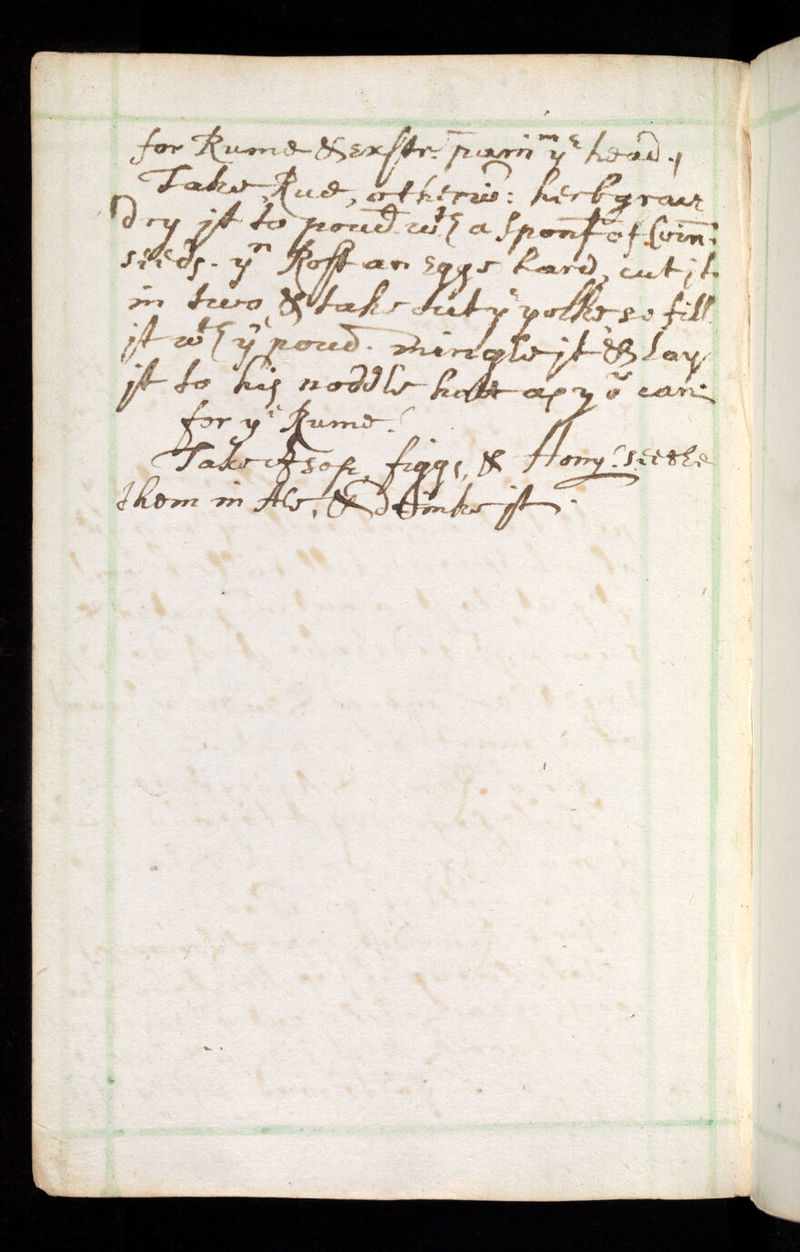 for Rume & extr. pain in yᵉ head.
Take Rue, otherw: herbgrau
dry jt to poud. wᵗʰ a sponf. of
seeds. yⁿ Rost an Egge hard, cut jt
in two, & take out yᵉ yolke so fill
jt wᵗʰ yᵉ poud. mingle jt & lay
jt to his noddle hott as yᵒ can
for yᵉ Rume.
Take Isop, figgs, & Hony: seethe
them in Ale, & drinke jt.